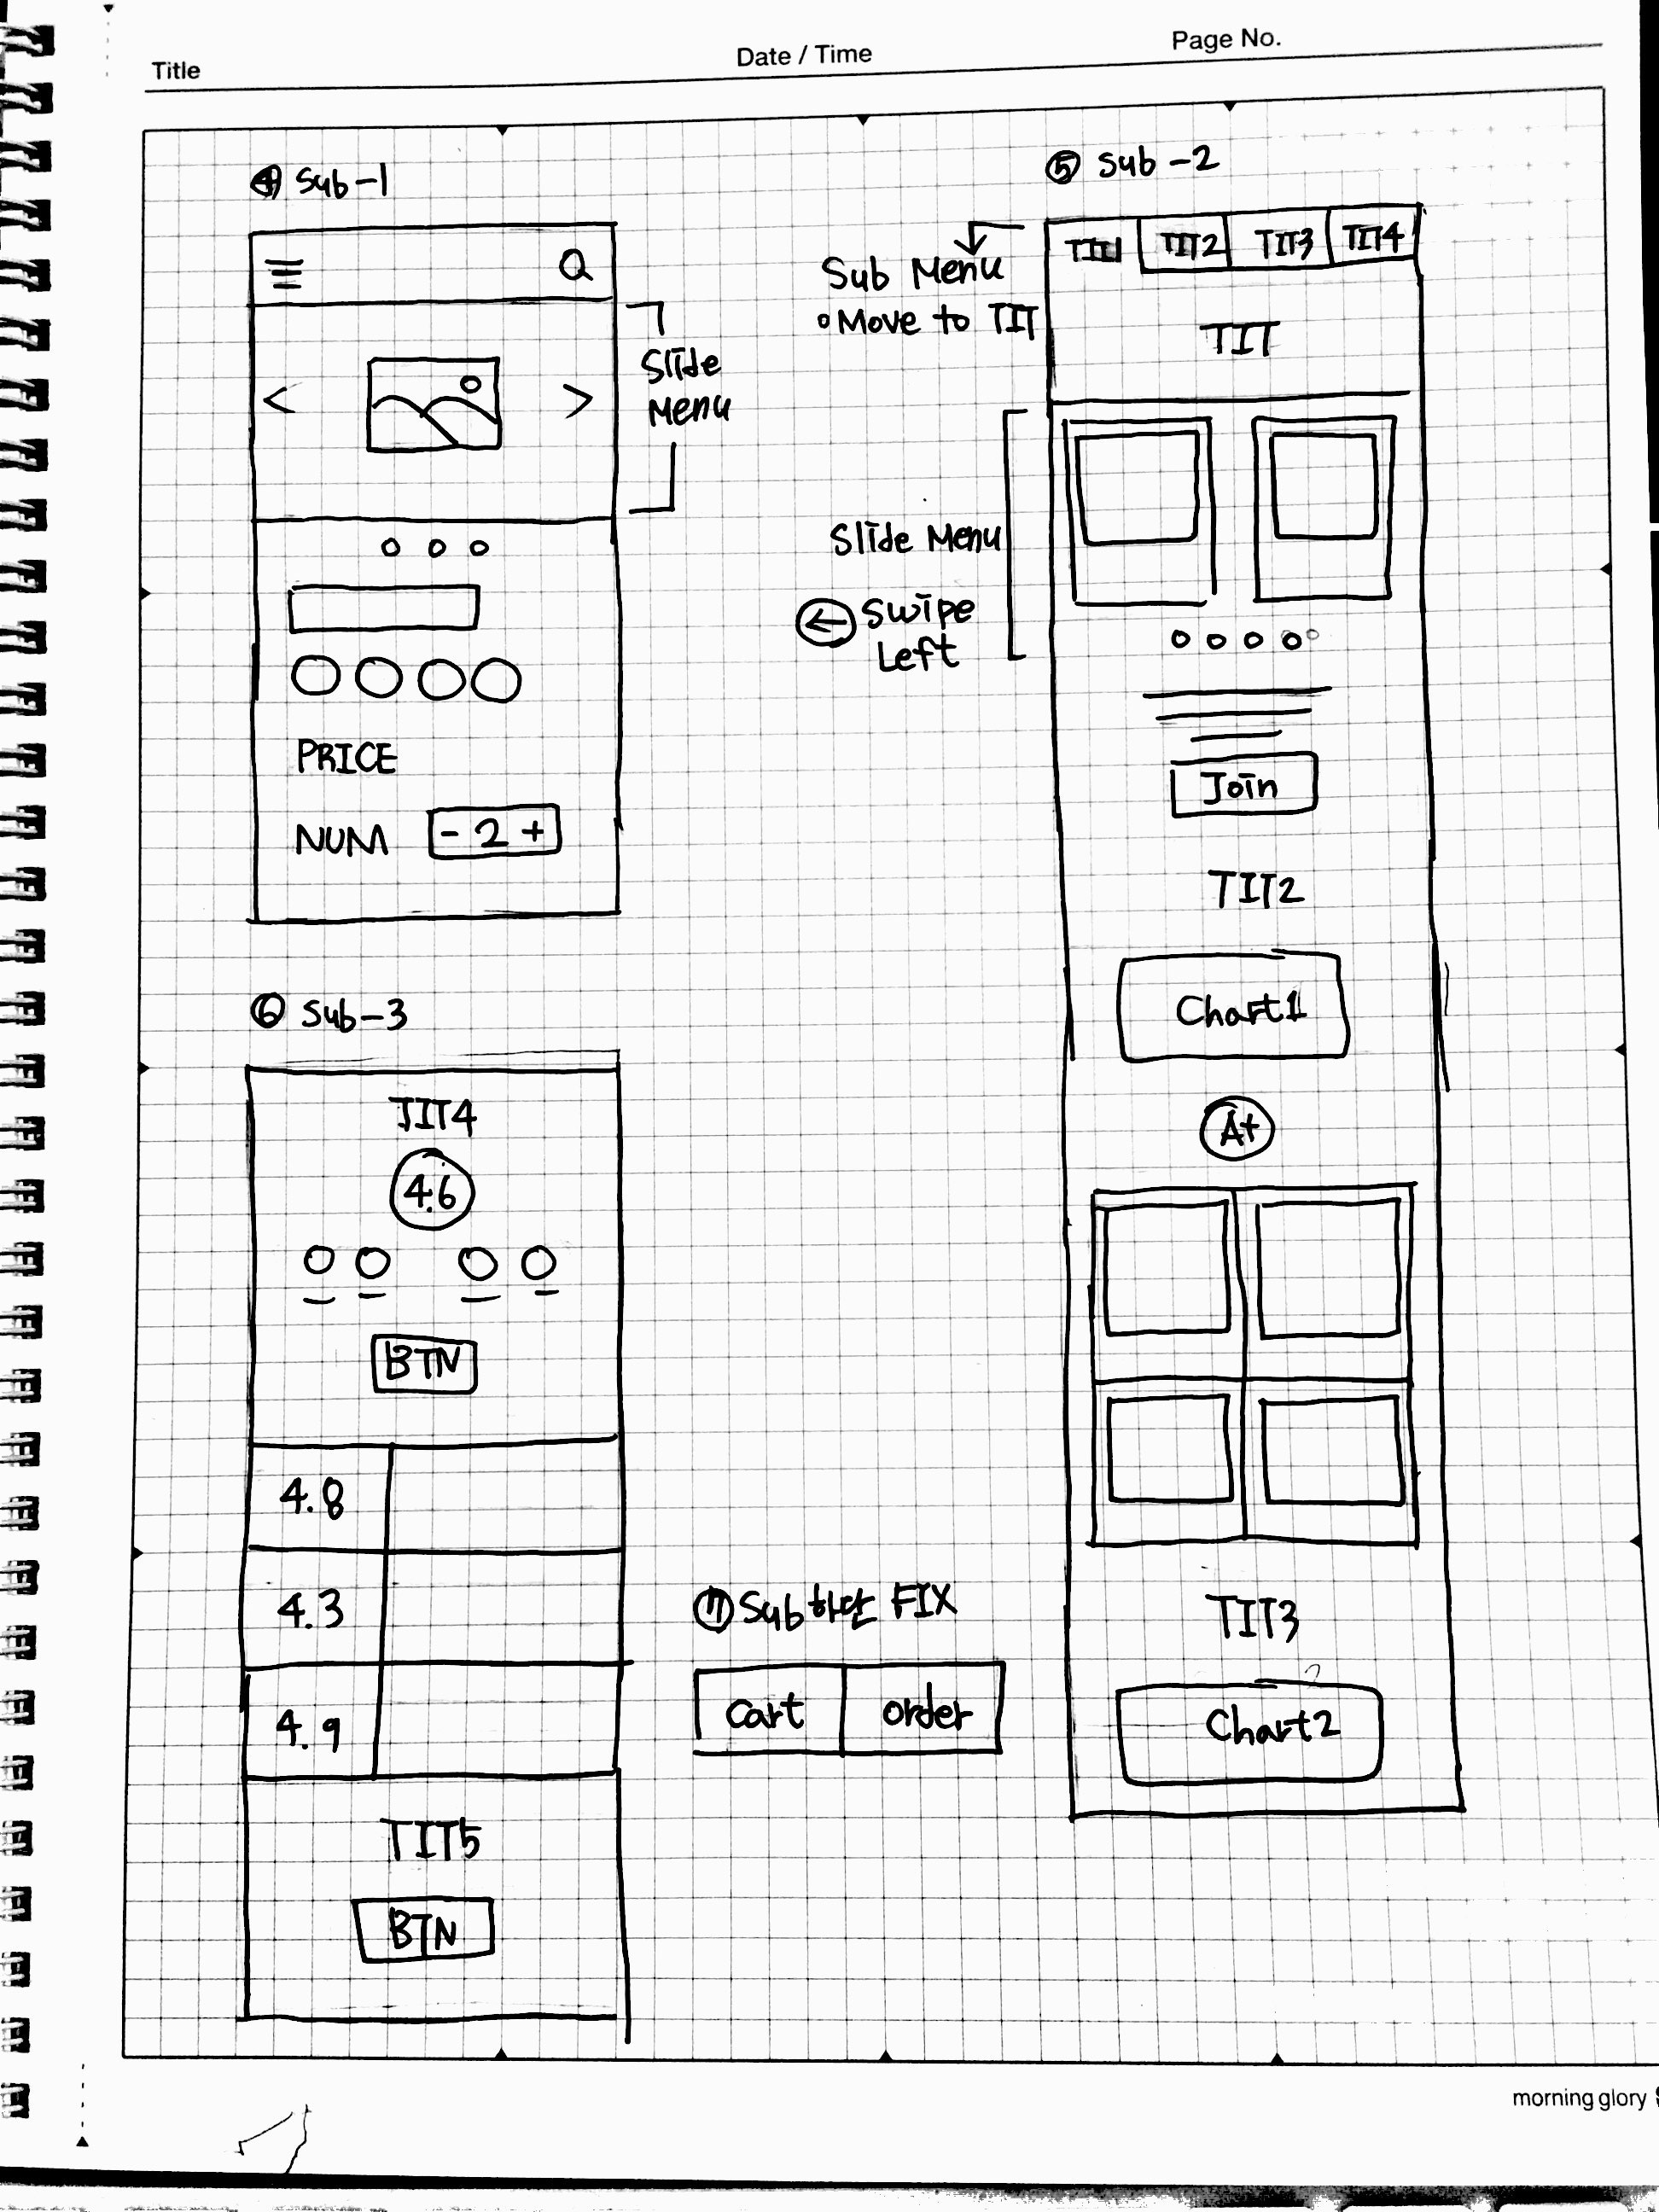 Title
Date / Time
Page No.
④ Sub-1
Slide
Menu
PRICE
NUM
- 2 +
⑤ Sub-2
Sub Menu
Move to TIT
TIT1 TIT2 TIT3 TIT4
TIT
Slide Menu
Swipe
Left
Join
TIT2
Chart1
A+
TIT3
Chart2
⑥ Sub-3
TIT4
4.6
BTN
4.8
4.3
4.9
TIT5
BTN
⑦ Sub 하단 FIX
Cart
order
morning glory